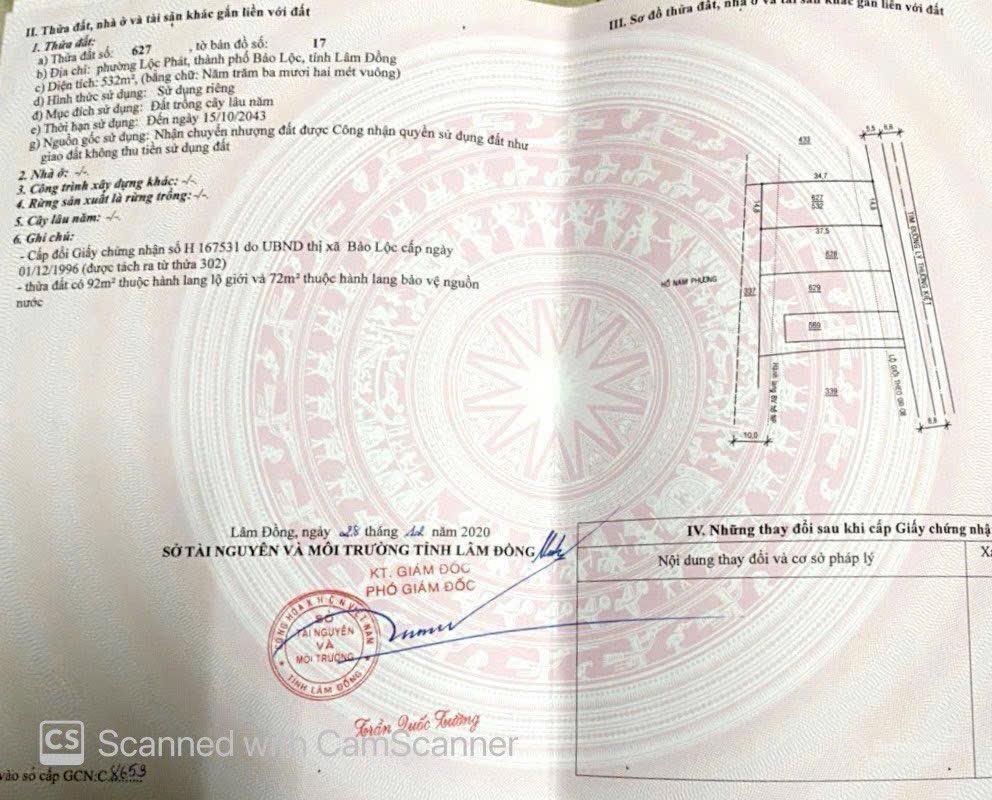 II. Thửa đất, nhà ở và tài sản khác gắn liền với đất
1. Thửa đất:
a) Thửa đất số: 627 , tờ bản đồ số: 17
b) Địa chỉ: phường Lộc Phát, thành phố Bảo Lộc, tỉnh Lâm Đồng
c) Diện tích: 532m², (bằng chữ: Năm trăm ba mươi hai mét vuông)
d) Hình thức sử dụng: Sử dụng riêng
đ) Mục đích sử dụng: Đất trồng cây lâu năm
e) Thời hạn sử dụng: Đến ngày 15/10/2043
g) Nguồn gốc sử dụng: Nhận chuyển nhượng đất được Công nhận quyền sử dụng đất như
giao đất không thu tiền sử dụng đất
2. Nhà ở: -/-
3. Công trình xây dựng khác: -/-
4. Rừng sản xuất là rừng trồng: -/-
5. Cây lâu năm: -/-
6. Ghi chú:
- Cấp đổi Giấy chứng nhận số H 167531 do UBND thị xã Bảo Lộc cấp ngày
01/12/1996 (được tách ra từ thửa 302)
- thửa đất có 92m² thuộc hành lang lộ giới và 72m² thuộc hành lang bảo vệ nguồn
nước
Lâm Đồng, ngày 28 tháng 12 năm 2020
SỞ TÀI NGUYÊN VÀ MÔI TRƯỜNG TỈNH LÂM ĐỒNG
KT. GIÁM ĐỐC
PHÓ GIÁM ĐỐC
CỘNG HÒA X.H.C.N VIỆT NAM
SỞ
TÀI NGUYÊN
VÀ
MÔI TRƯỜNG
TỈNH LÂM ĐỒNG
Trần Quốc Tường
CS Scanned with CamScanner
vào sổ cấp GCN:C.8653
III. Sơ đồ thửa đất, nhà ở và tài sản khác gắn liền với đất
433
5,5
6,6
34,7
627
532
14,9
14,3
37,5
628
HỒ NAM PHƯƠNG
337
629
569
339
TIM ĐƯỜNG LÝ THƯỜNG KIỆT
LỘ GIỚI THEO QĐ 08
10,0
6,6
IV. Những thay đổi sau khi cấp Giấy chứng nhậ
Nội dung thay đổi và cơ sở pháp lý